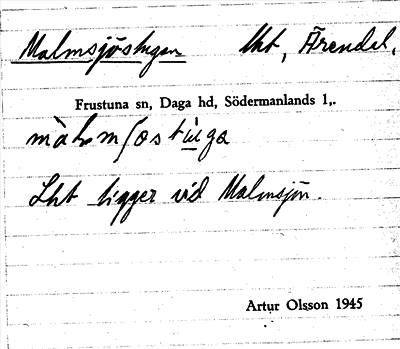 Malmsjöstugan lht, Ärendal,
Frustuna sn, Daga hd, Södermanlands l,.
Lht ligger vid Malmsjön.
Artur Olsson 1945